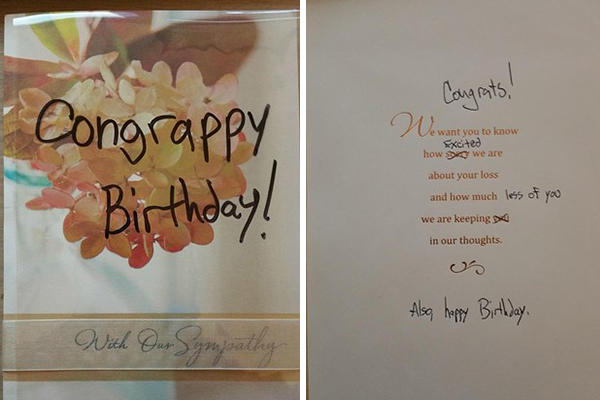 Congrappy
Birthday!
With Our Sympathy
Congrats!
We want you to know
excited
how sorry we are
about your loss
and how much less of you
we are keeping you
in our thoughts.
Also, happy Birthday.